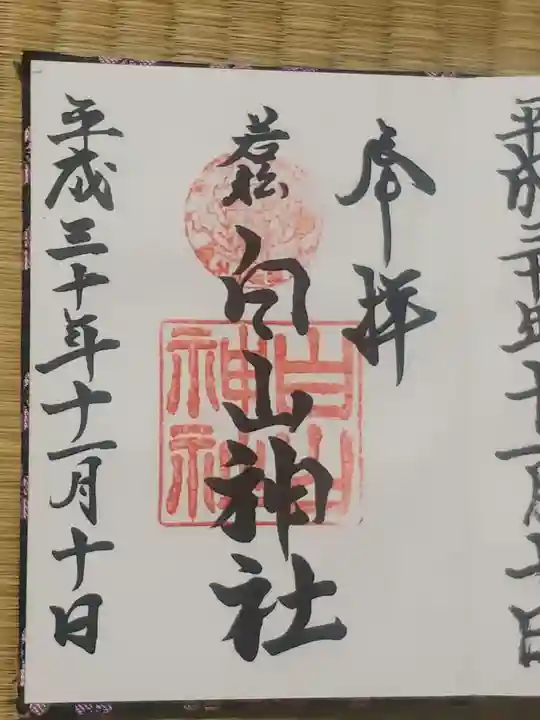 平成三十年十一月十日
奉拝
若松
白山神社
白山神社
平成三十年十一月十日